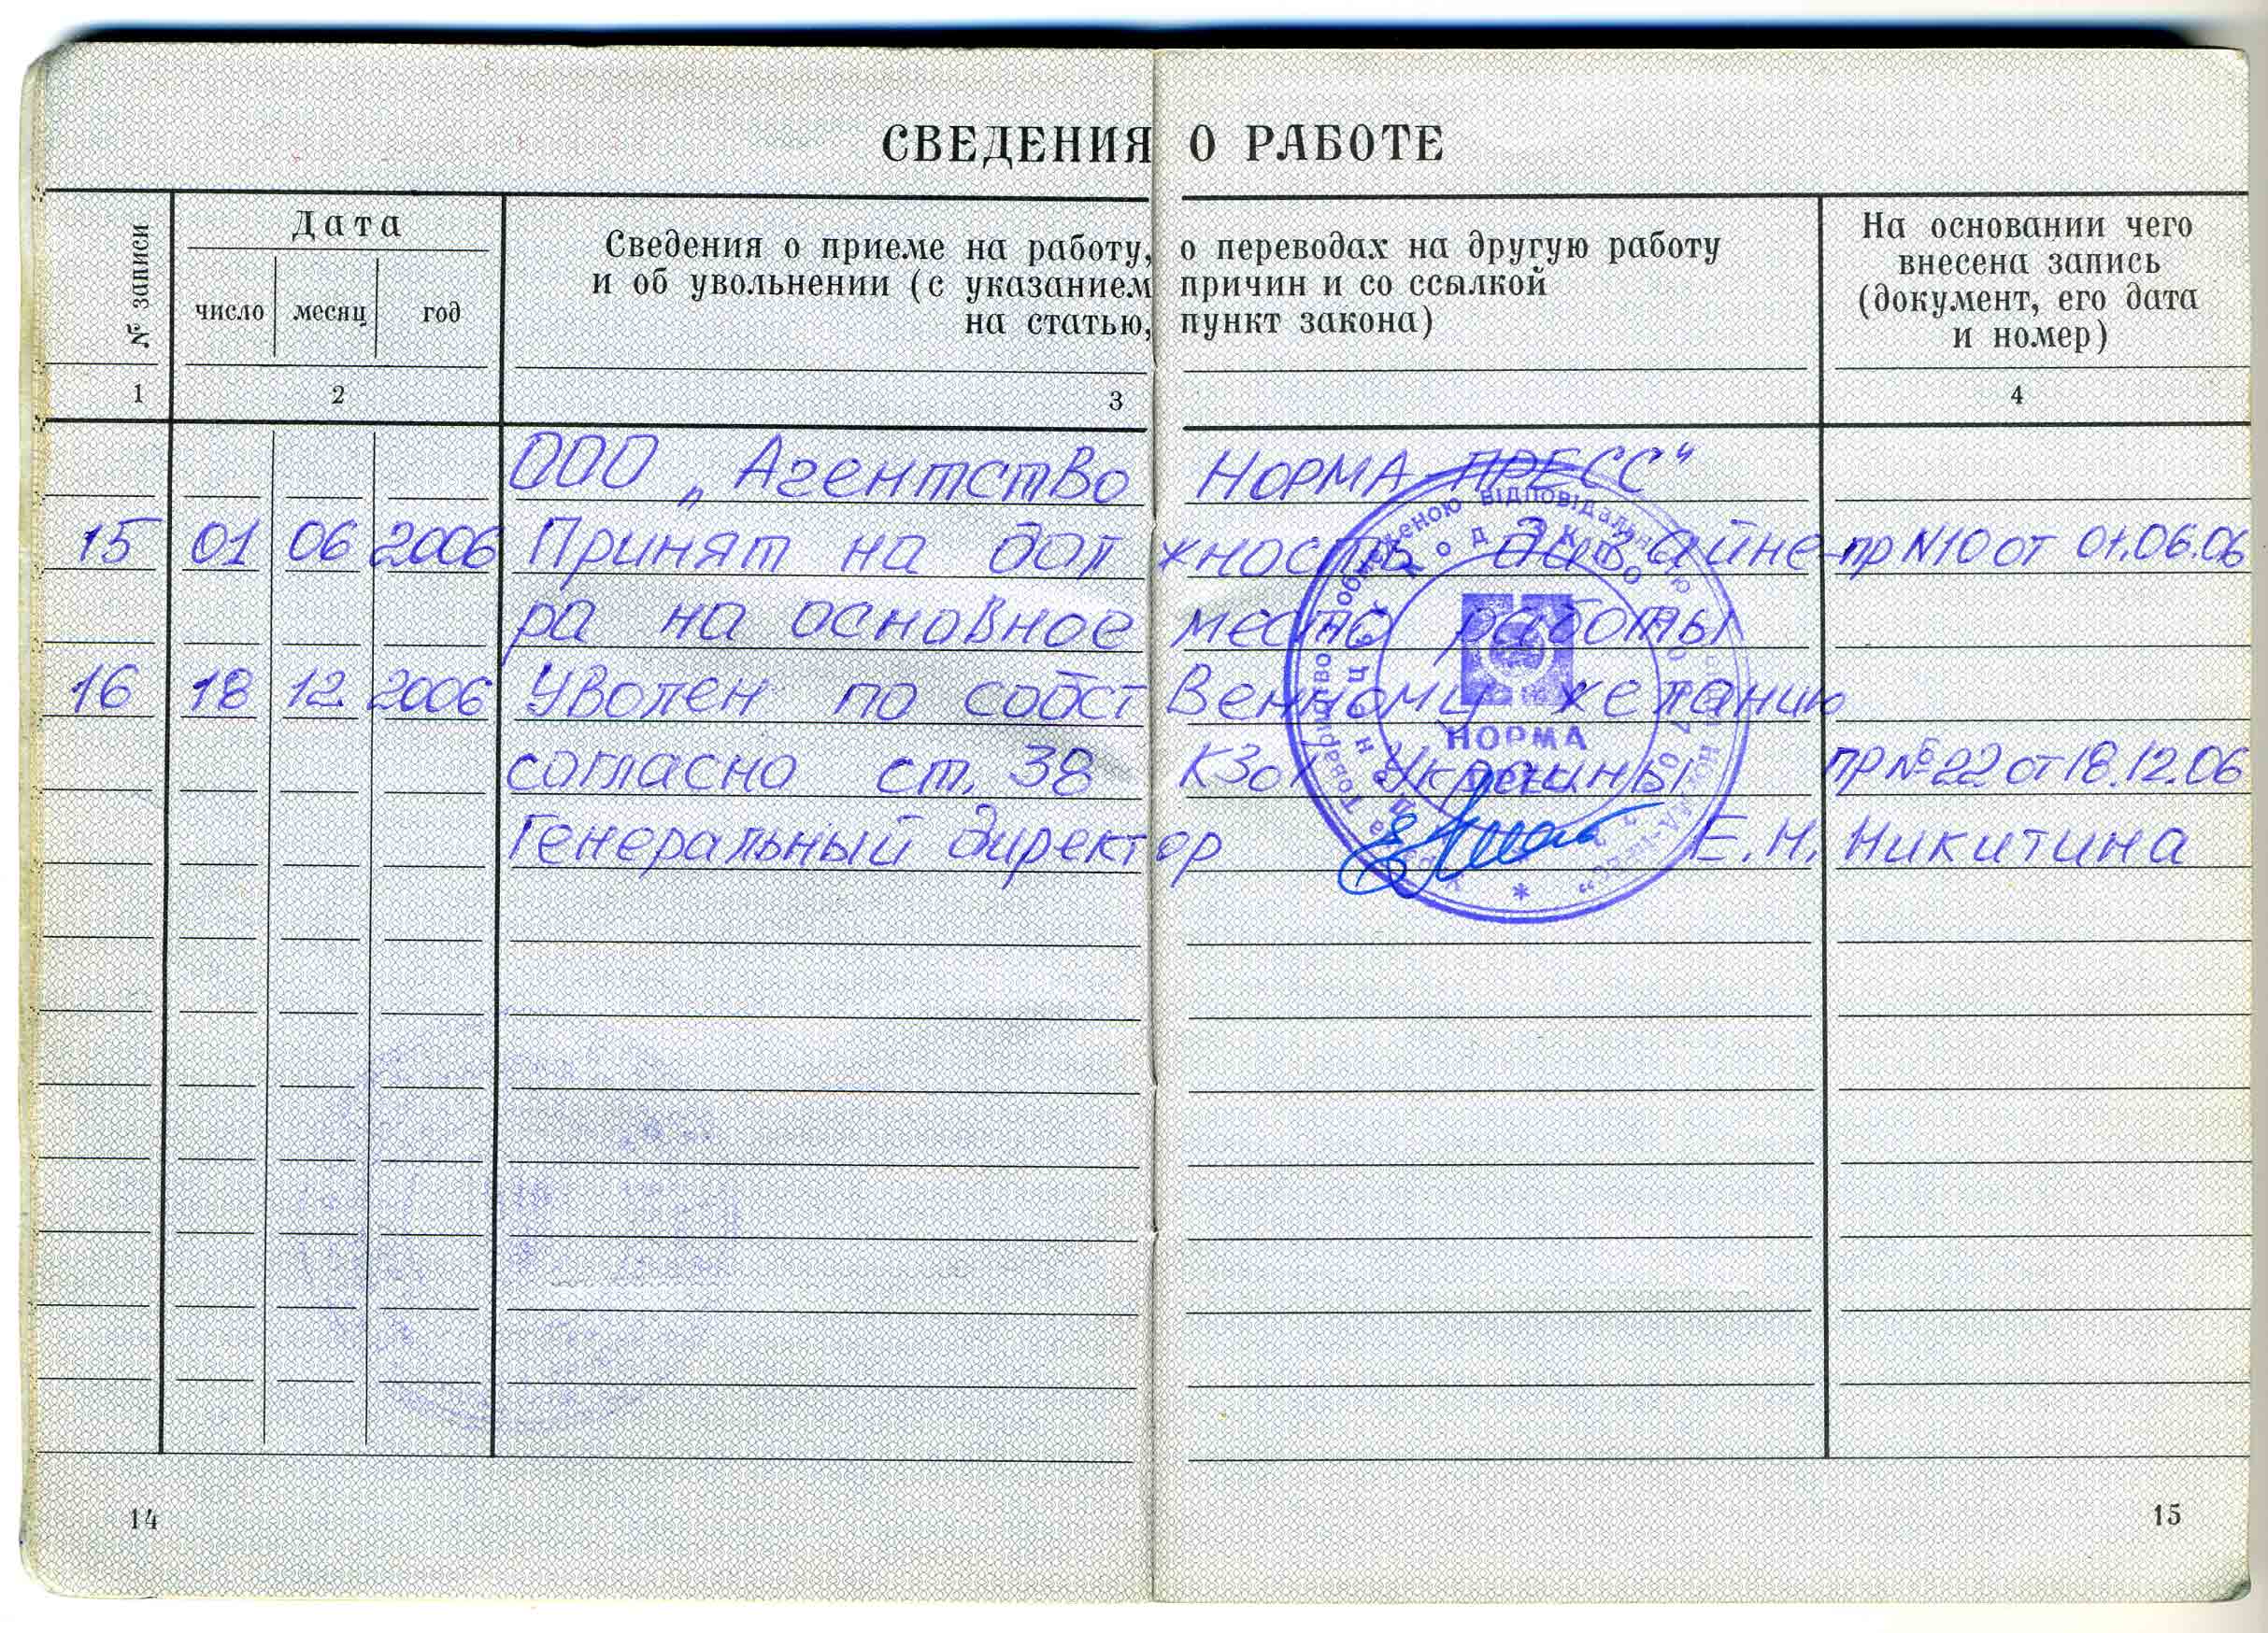 СВЕДЕНИЯ О РАБОТЕ
№ записи
Дата
число месяц год
Сведения о приеме на работу, о переводах на другую работу
и об увольнении (с указанием причин и со ссылкой
на статью, пункт закона)
На основании чего
внесена запись
(документ, его дата
и номер)
1 2 3 4
ООО „Агентство НОРМА-ПРЕСС"
15 01 06 2006 Принят на должность дизайне- пр N10 от 01.06.06
ра на основное место работы
16 18 12 2006 Уволен по собственному желанию
согласно ст. 38 КЗоТ Украины пр №22 от 18.12.06
Генеральный директор Е.Н. Никитина
обмеженою відповідальністю
НОРМА
14
15